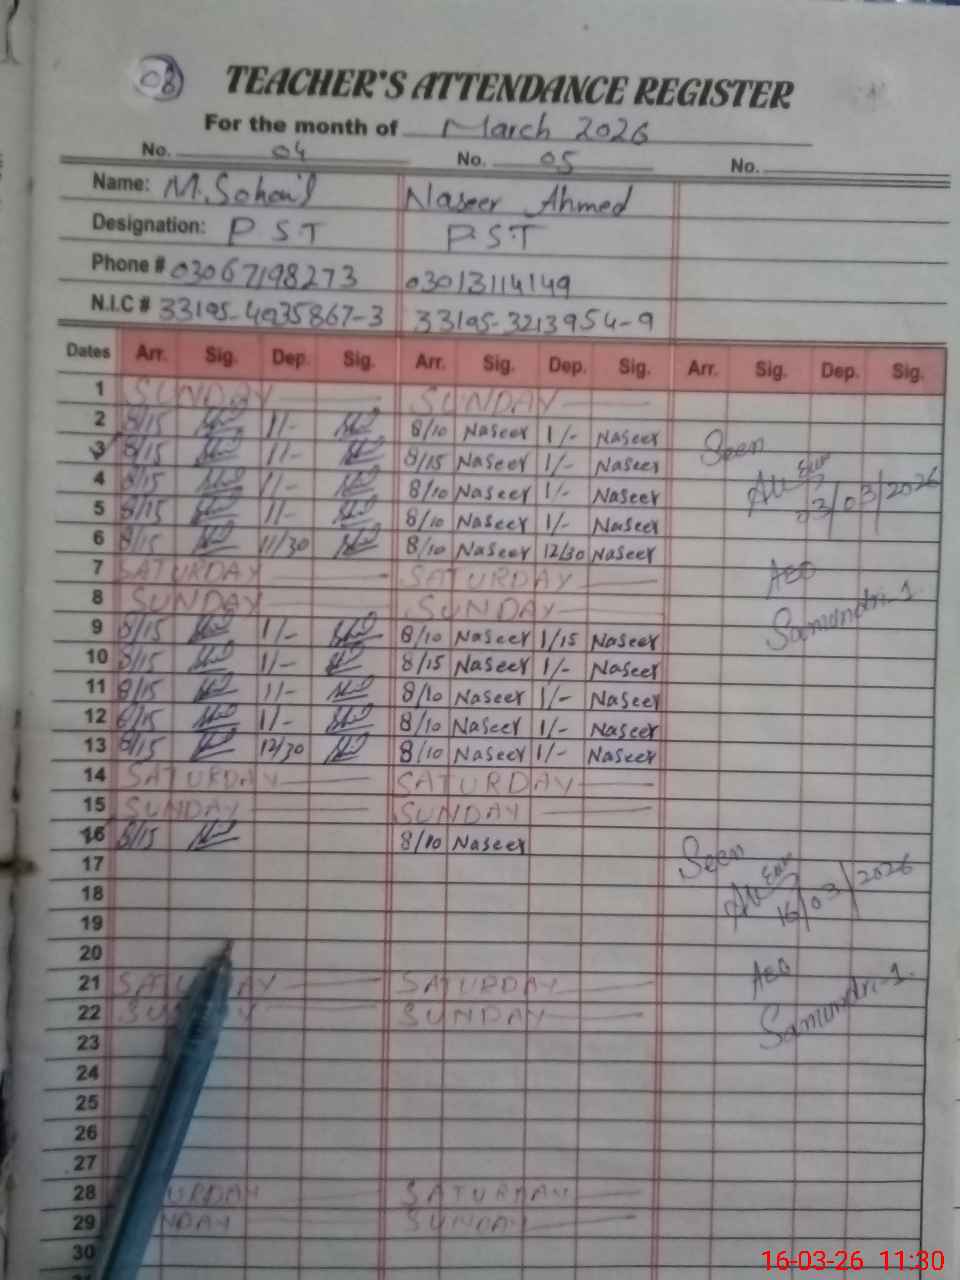 08
TEACHER'S ATTENDANCE REGISTER
For the month of March 2026
No. 04 No. 05 No.
Name: M. Sohail Naseer Ahmed
Designation: P S T P.S.T
Phone # 03067198273 03013114149
N.I.C # 33195-4035867-3 33195-3213954-9
Dates Arr. Sig. Dep. Sig. Arr. Sig. Dep. Sig. Arr. Sig. Dep. Sig.
1 SUNDAY SUNDAY
2 8/15 1/- 8/10 Naseer 1/- Naseer
3 8/15 1/- 8/15 Naseer 1/- Naseer Seen
4 8/15 1/- 8/10 Naseer 1/- Naseer 03/03/2026
5 8/15 1/- 8/10 Naseer 1/- Naseer
6 8/15 11/30 8/10 Naseer 12/30 Naseer
7 SATURDAY SATURDAY AEO
8 SUNDAY SUNDAY Samundri-1
9 8/15 1/- 8/10 Naseer 1/15 Naseer
10 8/15 1/- 8/15 Naseer 1/- Naseer
11 8/15 1/- 8/10 Naseer 1/- Naseer
12 8/15 1/- 8/10 Naseer 1/- Naseer
13 8/15 12/30 8/10 Naseer 1/- Naseer
14 SATURDAY SATURDAY
15 SUNDAY SUNDAY
16 8/15 8/10 Naseer Seen
17
18 16/03/2026
19
20
21 SATURDAY SATURDAY AEO
22 SUNDAY SUNDAY Samundri-1
23
24
25
26
27
28 URDAY SATURDAY
29 NDAY SUNDAY
30
16-03-26 11:30